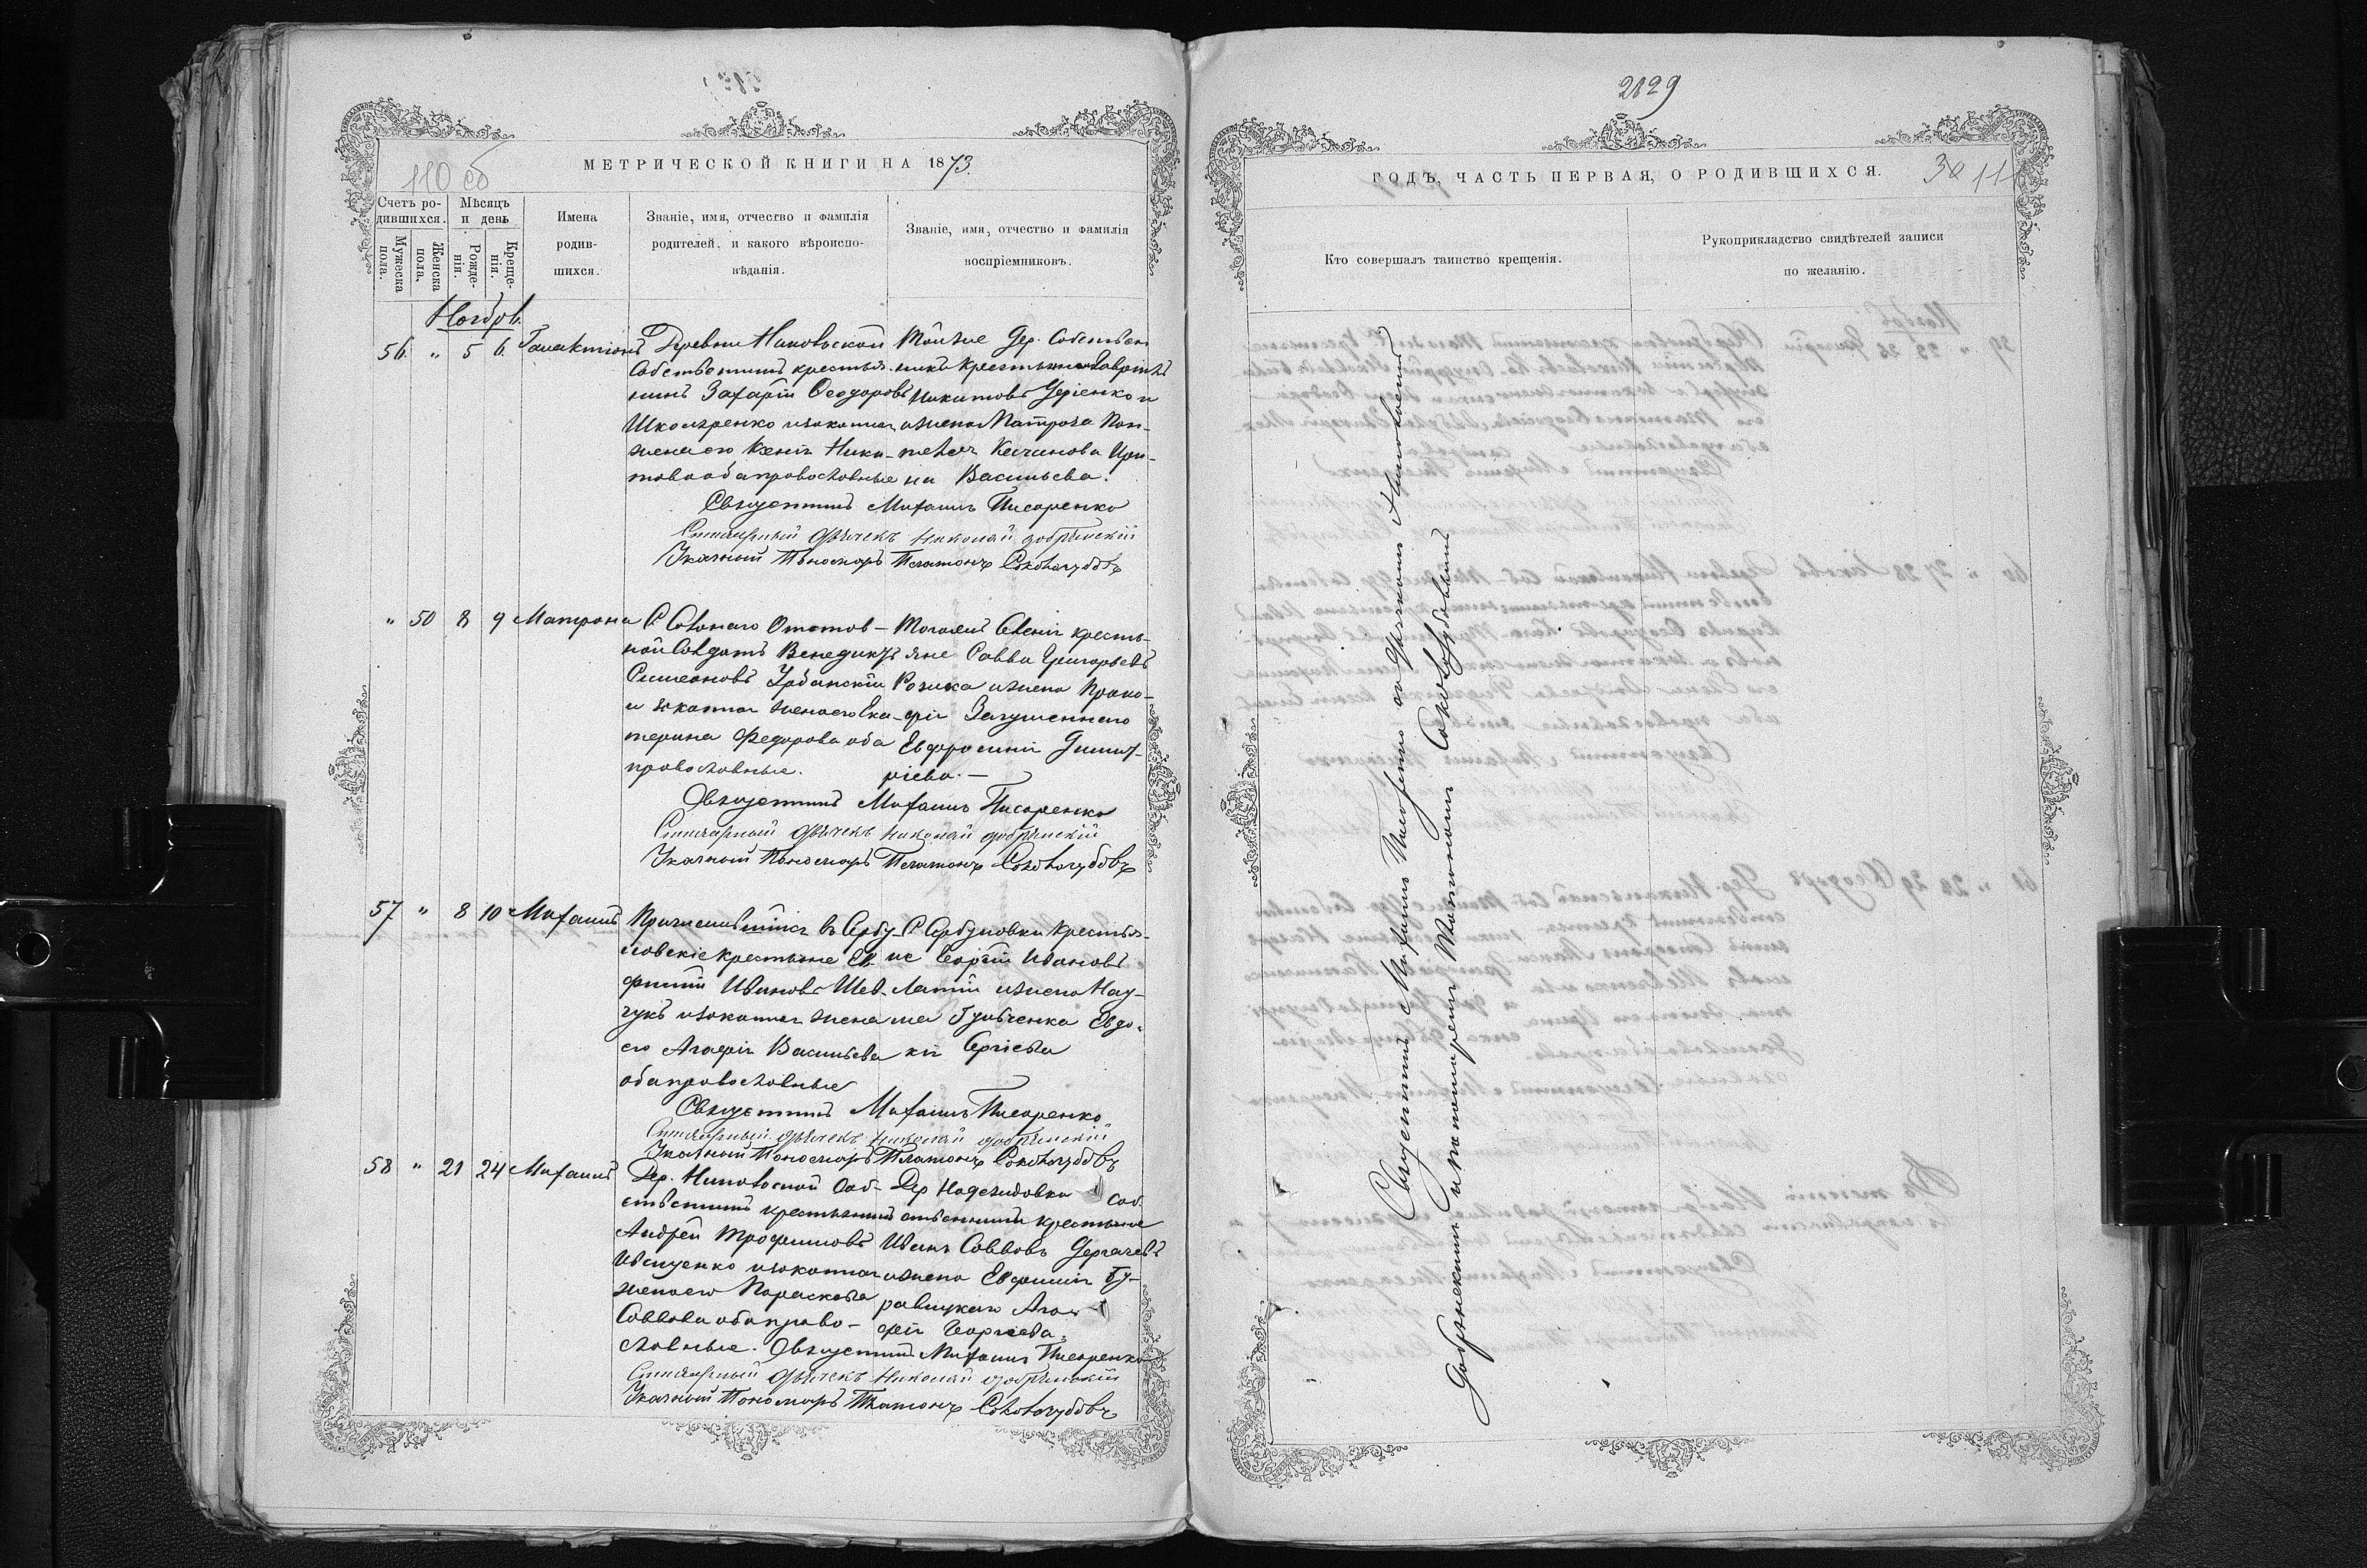 2129
МЕТРИЧЕСКОЙ КНИГИ НА 1873.
110 об
Счетъ ро-
дившихся.
Мужеска пола.
Женска пола.
Мѣсяцъ
и день
Рожде-
нія.
Креще-
нія.
Имена
родив-
шихся.
Званіе, имя, отчество и фамилія
родителей, и какого вѣроиспо-
вѣданія.
Званіе, имя, отчество и фамилія
воспріемниковъ.
Ноябрь.
56. " 5 6. Галактіонъ
Деревни Никовьской
Собственникъ крестья-
нинъ Захарій Ѳеодоровъ
Школяренко изаконная
жена его Ксенія Ники-
това оба православные
Той же Дер. Собствен
никъ крестьянинъ Гавріилъ
Никитовъ Чеpіенко и
жена Матроза
Васильева.
Священникъ Михаилъ Писаренко
Стихарный дьячекъ Николай Добрянскій
Указный Пономарь Платонъ Соковагубовъ
" 50 8 9 Матрона
С Сованаго Отстав-
ной Солдатъ Венедиктъ
Симеоновъ Урбанскій
и законная жена его Ека-
терина Федорова оба
православные.
Тогожъ Селенія кресть-
яне Савва Григорьевъ
Розика и жена Проко-
фія Загушеннаго
Евфросинія Димит-
ріева. —
Священникъ Михаилъ Писаренко
Стихарный дьячекъ Николай Добрянскій
Указный Пономарь Платонъ Соковагубовъ
57 " 8 10 Михаилъ
Причислившійся въ Сербу-
ловскіе крестьяне Ев-
фимій Ивановъ Шев-
чукъ изаконная жена
его Агафія Васильева
оба православные
С Сербуловки крестья-
не Георгій Ивановъ
и жена Нау-
ма Губченка Евдо-
кія Сергіева
Священникъ Михаилъ Писаренко
Стихарный дьячекъ Николай Добрянскій
Указный Пономарь Платонъ Соковагубовъ
58 " 21 24 Михаилъ
Дер. Никовьской Соб-
ственникъ крестьянинъ
Андрей Трофимовъ
Иващенко изаконная
жена его Параскева
Саввова оба право-
славные.
Дер Надеждовка Соб
ственники крестьяне
Иванъ Саввовъ Дергачевъ
и жена Евфимія Бу-
равицкаго Ага-
фія Георгіева.
Священникъ Михаилъ Писаренко
Стихарный дьячекъ Николай Добрянскій
Указный Пономарь Платонъ Соковагубовъ
ГОДЪ, ЧАСТЬ ПЕРВАЯ, О РОДИВШИХСЯ.
30 111
Кто совершалъ таинство крещенія.
Рукоприкладство свидѣтелей записи
по желанію.
Священникъ Михаилъ Писаренко со дьячкомъ Николаемъ
Добрянскимъ и пономаремъ Платономъ Соковагубовымъ